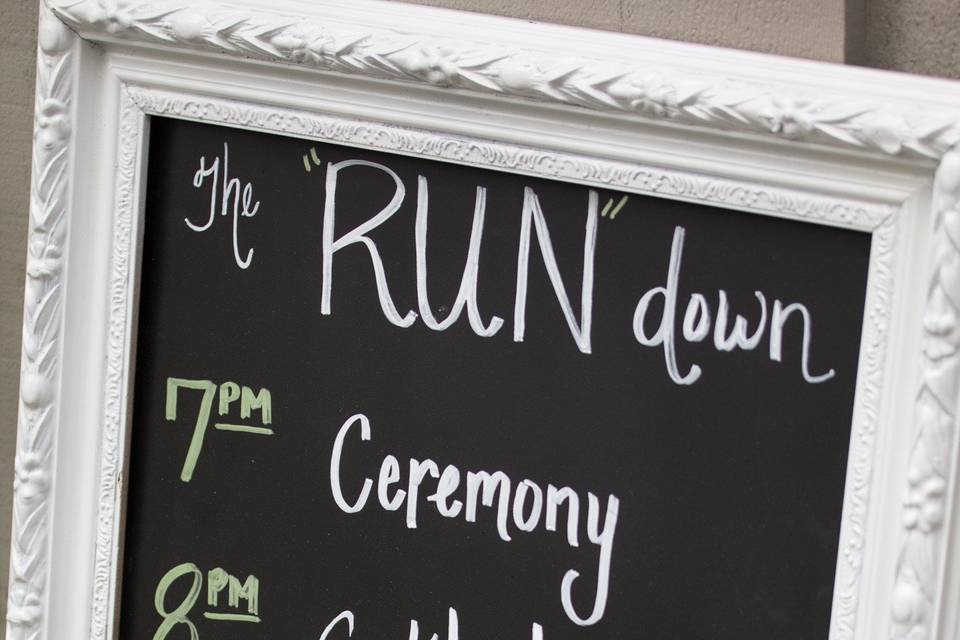 The "RUN" down
7PM Ceremony
8PM